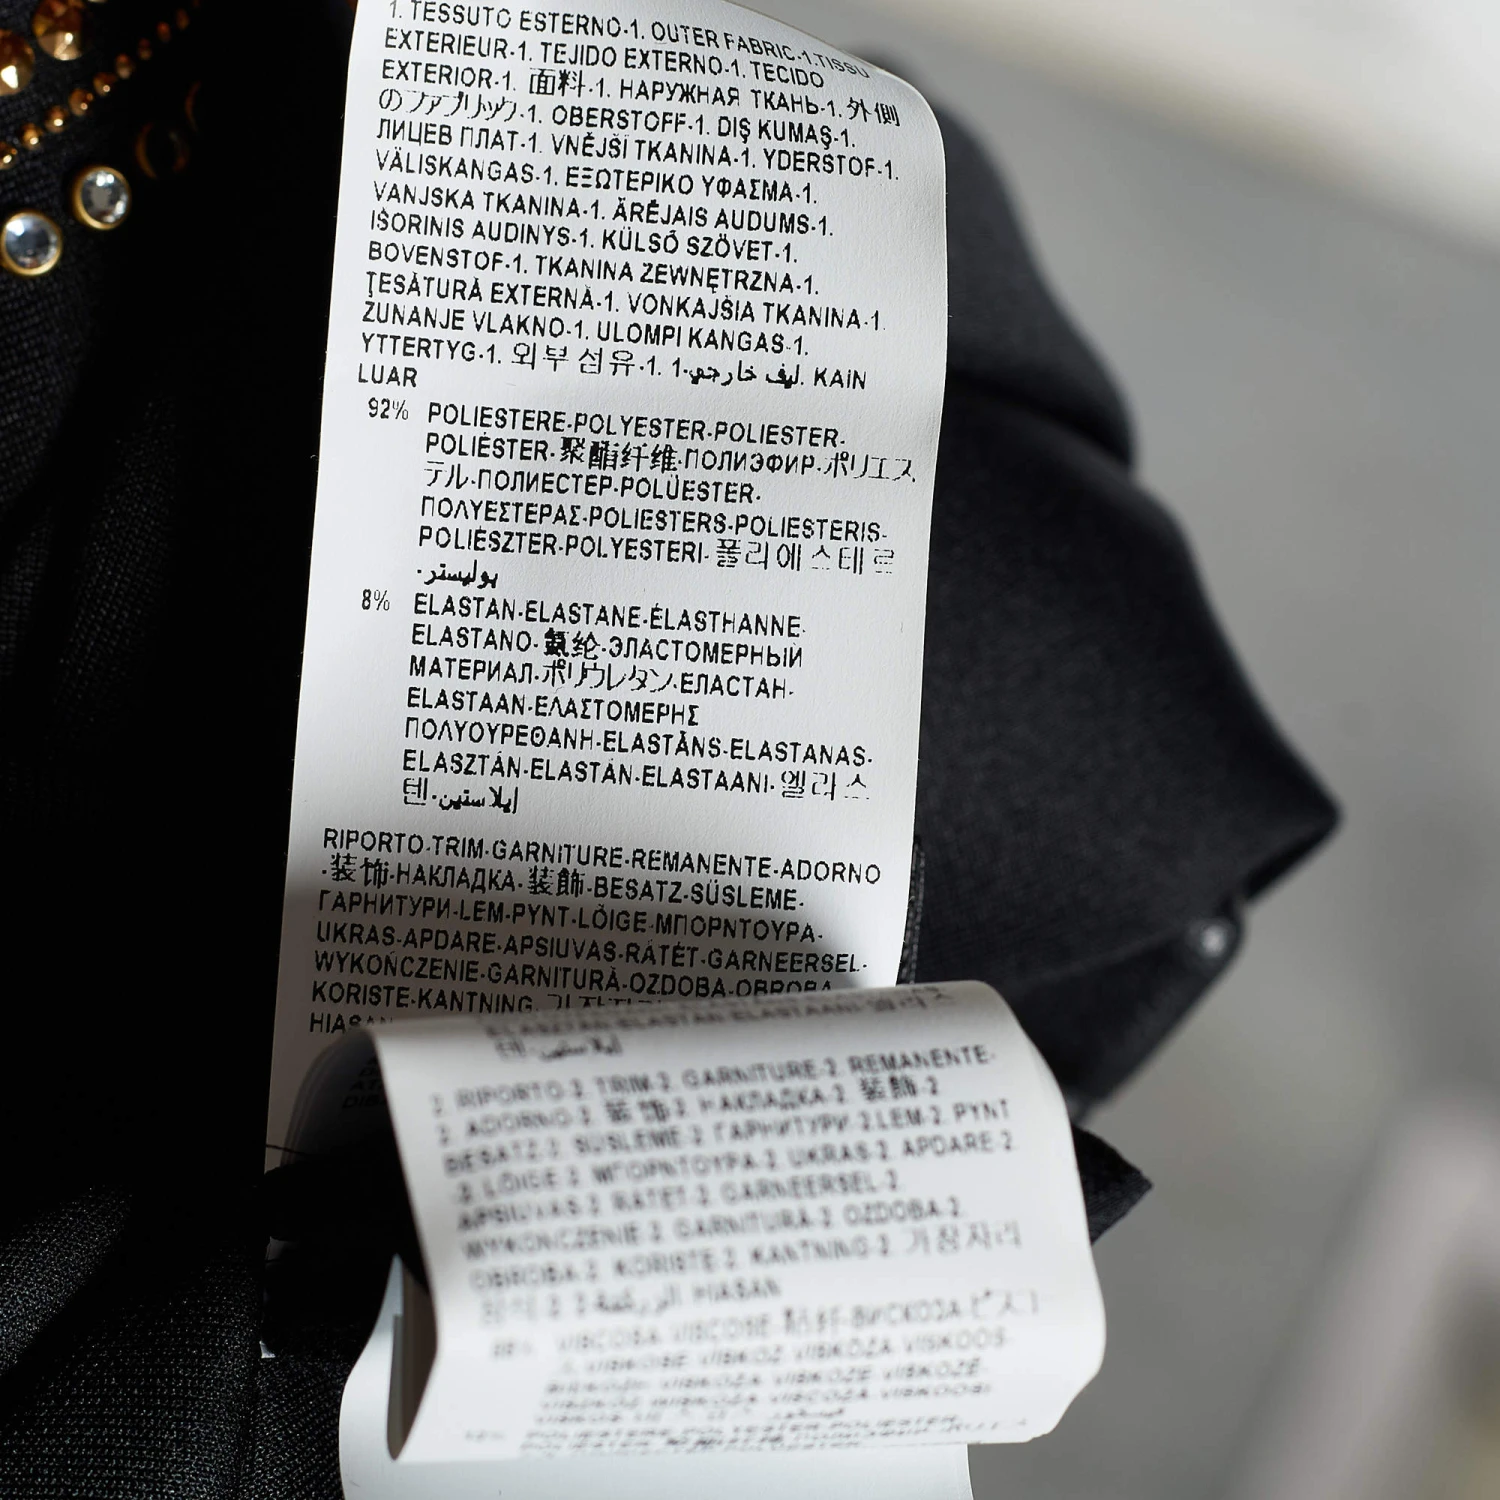 1. TESSUTO ESTERNO-1. OUTER FABRIC-1.TISSU
EXTERIEUR-1. TEJIDO EXTERNO-1. TECIDO
EXTERIOR-1. 面料-1. НАРУЖНАЯ ТКАНЬ-1. 外側
のファブリック-1. OBERSTOFF-1. DIŞ KUMAŞ-1.
ЛИЦЕВ ПЛАТ-1. VNĚJŠÍ TKANINA-1. YDERSTOF-1.
VÄLISKANGAS-1. ΕΞΩΤΕΡΙΚΟ ΥΦΑΣΜΑ-1.
VANJSKA TKANINA-1. ĀRĒJAIS AUDUMS-1.
IŠORINIS AUDINYS-1. KÜLSŐ SZÖVET-1.
BOVENSTOF-1. TKANINA ZEWNĘTRZNA-1.
ŢESĂTURĂ EXTERNĂ-1. VONKAJŠIA TKANINA-1.
ZUNANJE VLAKNO-1. ULOMPI KANGAS-1.
YTTERTYG-1. 외부 섬유-1. 1-ليف خارجي. KAIN
LUAR
92% POLIESTERE-POLYESTER-POLIESTER-
POLIÉSTER-聚酯纤维-ПОЛИЭФИР-ポリエス
テル-ПОЛИЕСТЕР-POLÜESTER-
ΠΟΛΥΕΣΤΕΡΑΣ-POLIESTERS-POLIESTERIS-
POLIÉSZTER-POLYESTERI-폴리에스테르
-بوليستر
8% ELASTAN-ELASTANE-ÉLASTHANNE-
ELASTANO-氨纶-ЭЛАСТОМЕРНЫЙ
МАТЕРИАЛ-ポリウレタン-ЕЛАСТАН-
ELASTAAN-ΕΛΑΣΤΟΜΕΡΗΣ
ΠΟΛΥΟΥΡΕΘΑΝΗ-ELASTĀNS-ELASTANAS-
ELASZTÁN-ELASTAN-ELASTAANI-엘라스
텐-إيلاستين
RIPORTO-TRIM-GARNITURE-REMANENTE-ADORNO
-装饰-НАКЛАДКА-装飾-BESATZ-SÜSLEME-
ГАРНИТУРИ-LEM-PYNT-LÕIGE-ΜΠΟΡΝΤΟΥΡΑ-
UKRAS-APDARE-APSIUVAS-RÁTÉT-GARNEERSEL-
WYKOŃCZENIE-GARNITURĂ-OZDOBA-OBROBA
KORISTE-KANTNING-
HIASAN
ELASZTÁN-ELASTAN-ELASTAANI-엘라스
텐-إيلاستين
2. RIPORTO-2. TRIM-2. GARNITURE-2. REMANENTE-
2. ADORNO-2. 装饰-2. НАКЛАДКА-2. 装飾-2
BESATZ-2. SÜSLEME-2. ГАРНИТУРИ-2.LEM-2. PYNT
-2. LÕIGE-2. ΜΠΟΡΝΤΟΥΡΑ-2. UKRAS-2. APDARE-2.
APSIUVAS-2. RÁTÉT-2. GARNEERSEL-2.
WYKOŃCZENIE-2. GARNITURĂ-2. OZDOBA-2.
OBROBA-2. KORISTE-2. KANTNING-2. 가장자리
HIASAN
VISCOSA-VISCOSE-粘纤-ВИСКОЗА-